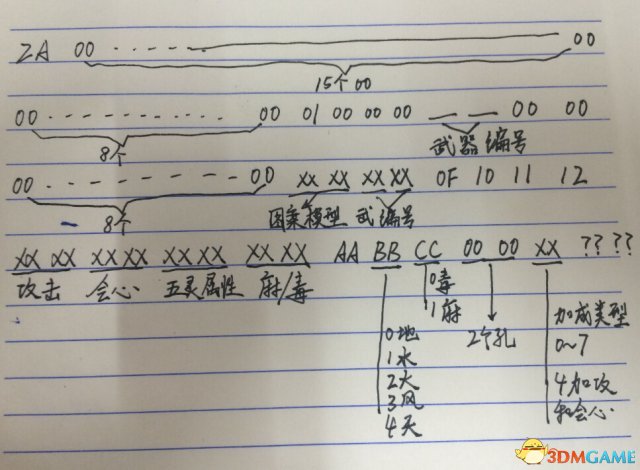 2A 00 ...... 00
15个00
00 ---------- 00 01 00 00 00 __ __ 00 00
8个 武器编号
00 ---------- 00 XX XX XX XX 0F 10 11 12
8个 因果模型 武编号
XX XX XX XX XX XX XX XX AA BB CC 00 00 XX ?? ??
攻击 会心 五灵属性 麻/毒
0毒
1麻
0地
1水
2火
3风
4天
2个孔
加成类型
0~7
4加攻
和会心
3DMGAME